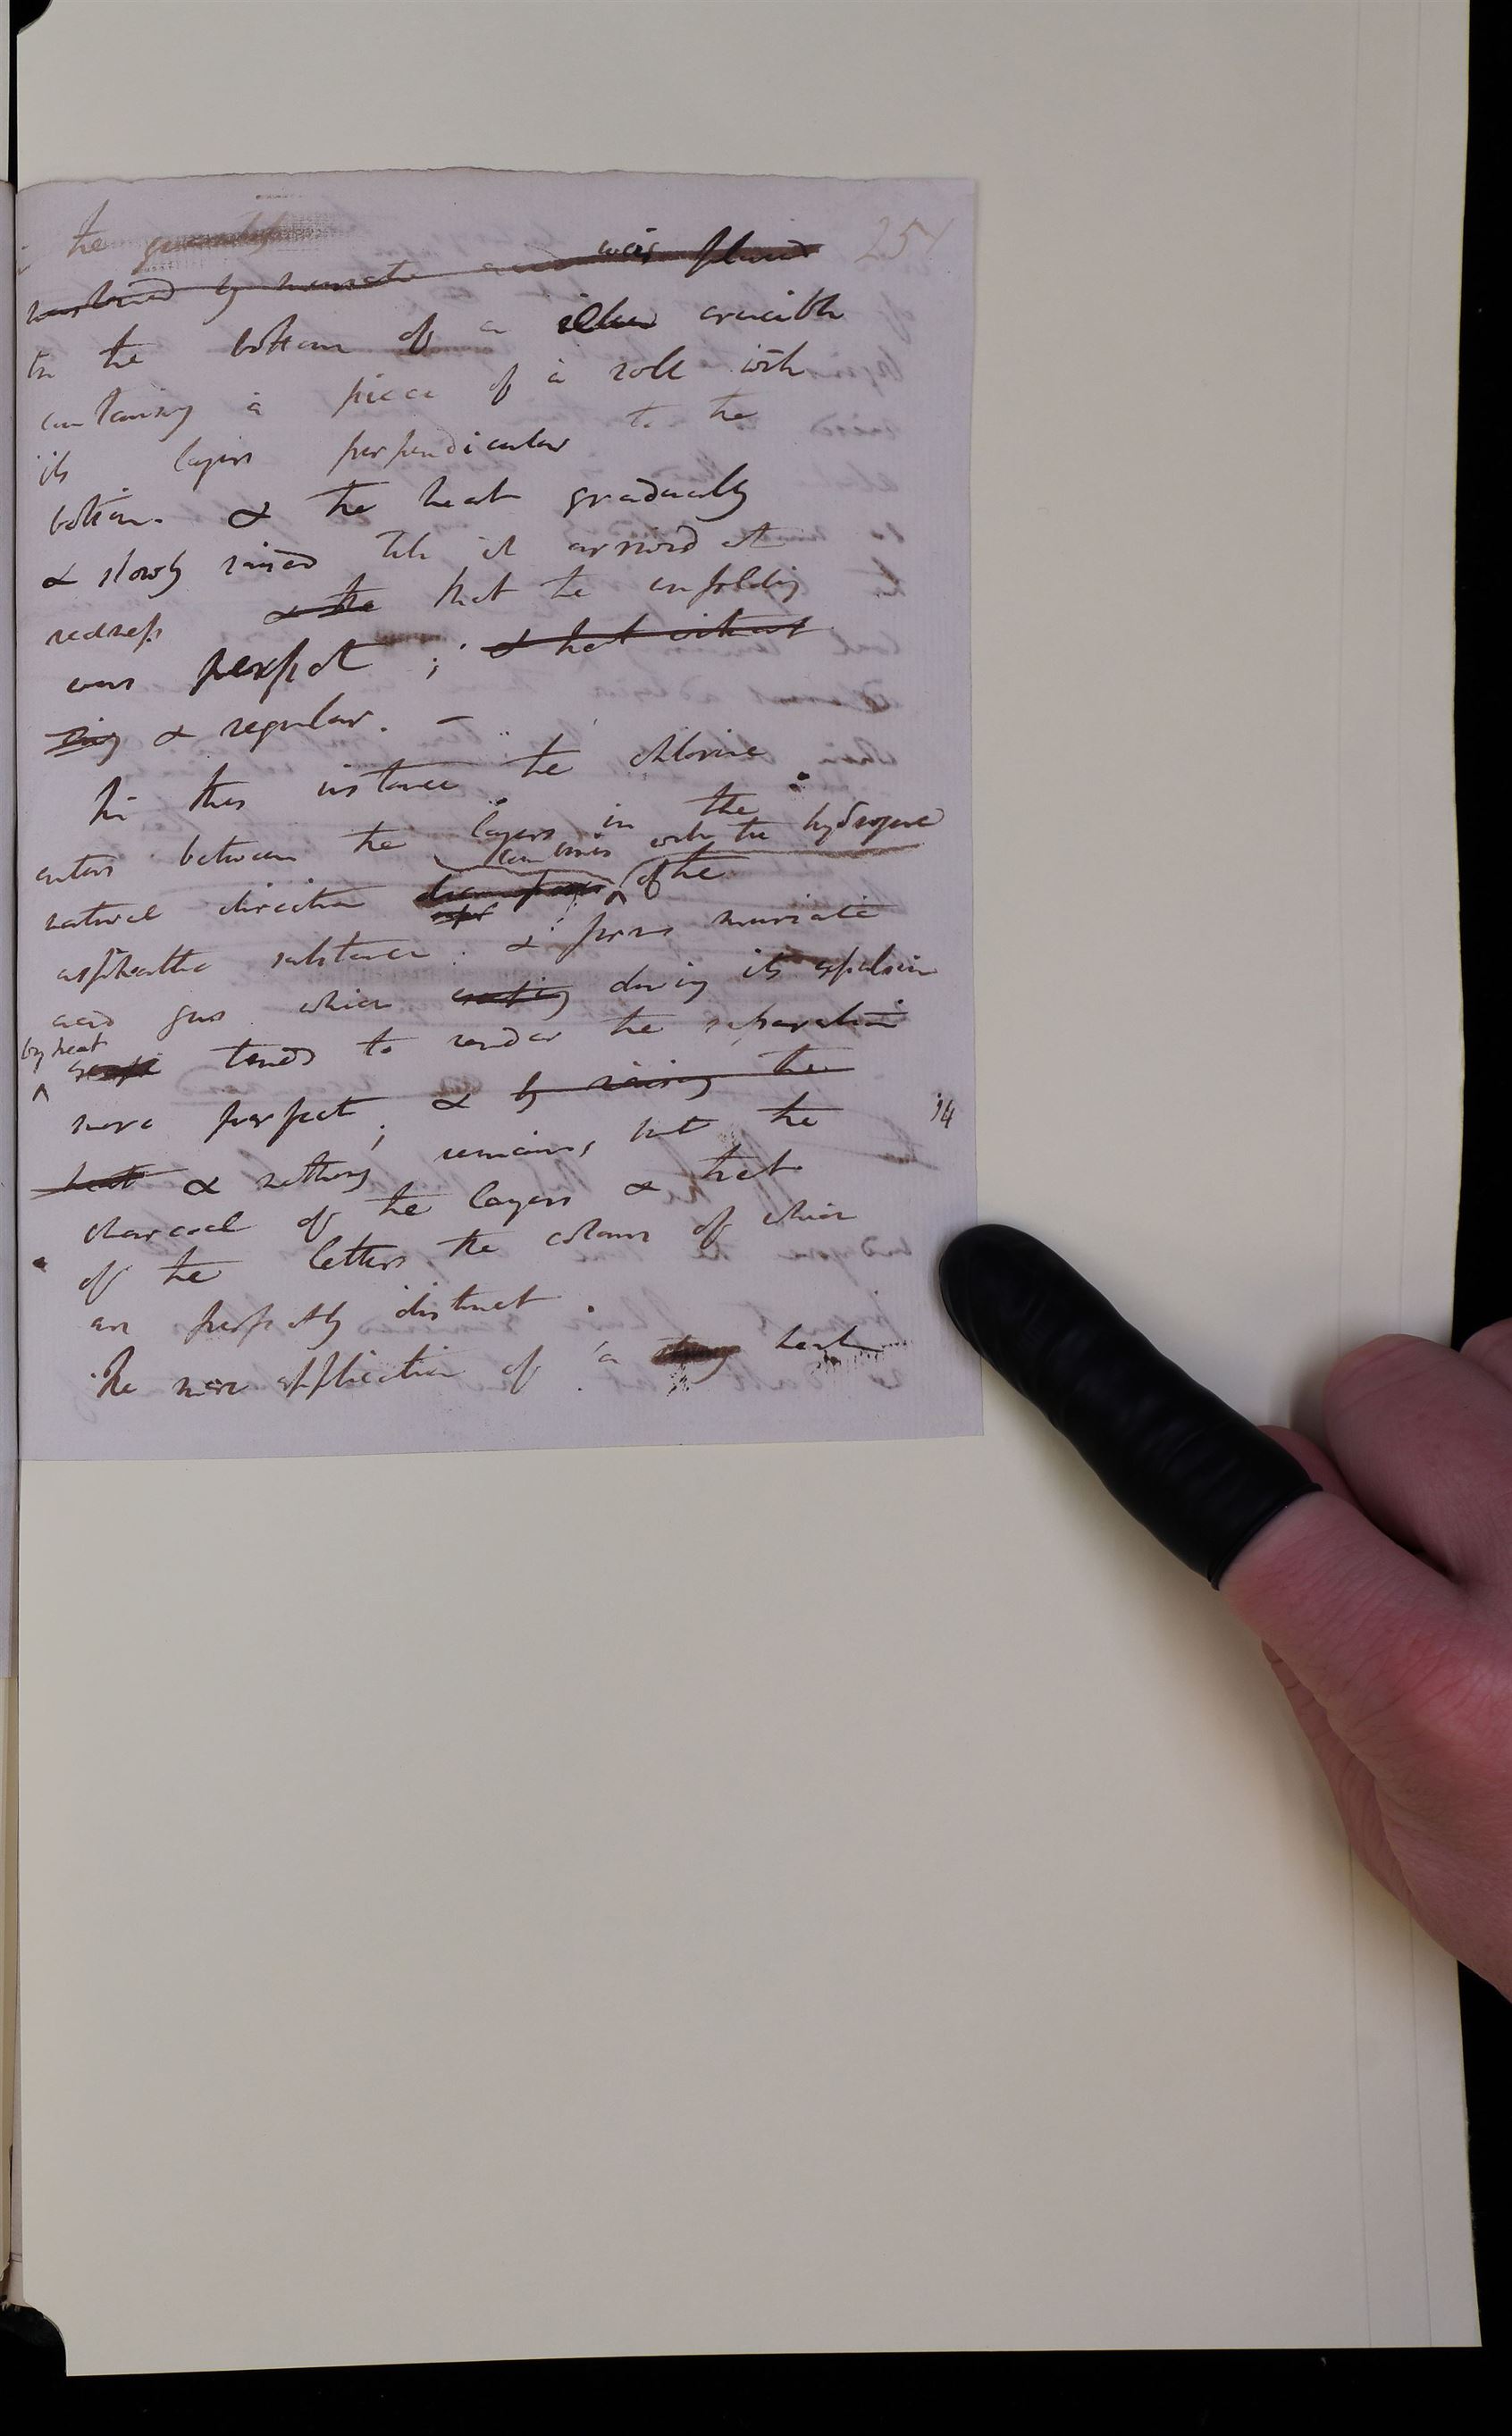 the quantity 251
by muriatic acid was placed
in the bottom of a crucible
containing a piece of a roll with
its layers perpendicular to the
bottom. & the heat gradually
& slowly raised till it arrived at
redness & the that the unfolding
was perfect ; & that without
& regular. –
In this instance the chlorine
enters between the layers in the
combines with the hydrogene
natural direction of the
asphaltic substance. & forms muriatic
acid gas which during its expulsion
by heat
tends to render the separation
more perfect; & by raising the 14
heat & nothing remains, but the
charcoal of the layers & that
of the letters the colour of which
are perfectly distinct.
The mere application of a strong heat